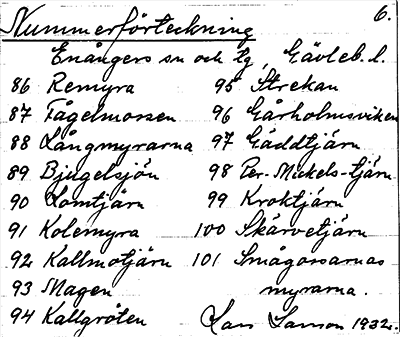 6.
Nummerförteckning
Enångers sn och tg, Gävleb. l.
86 Remyra
87 Fågelmossen
88 Långmyrarna
89 Bjugelsjön
90 Lomtjärn
91 Kolemyra
92 Kallmotjärn
93 Magen
94 Kallgröten
95 Strekan
96 Gårholmsviken
97 Gäddtjärn
98 Per-Mickels-tjärn
99 Kroktjärn
100 Skärvetjärn
101 Smågossarnas
myrarna.
Lars 1932.